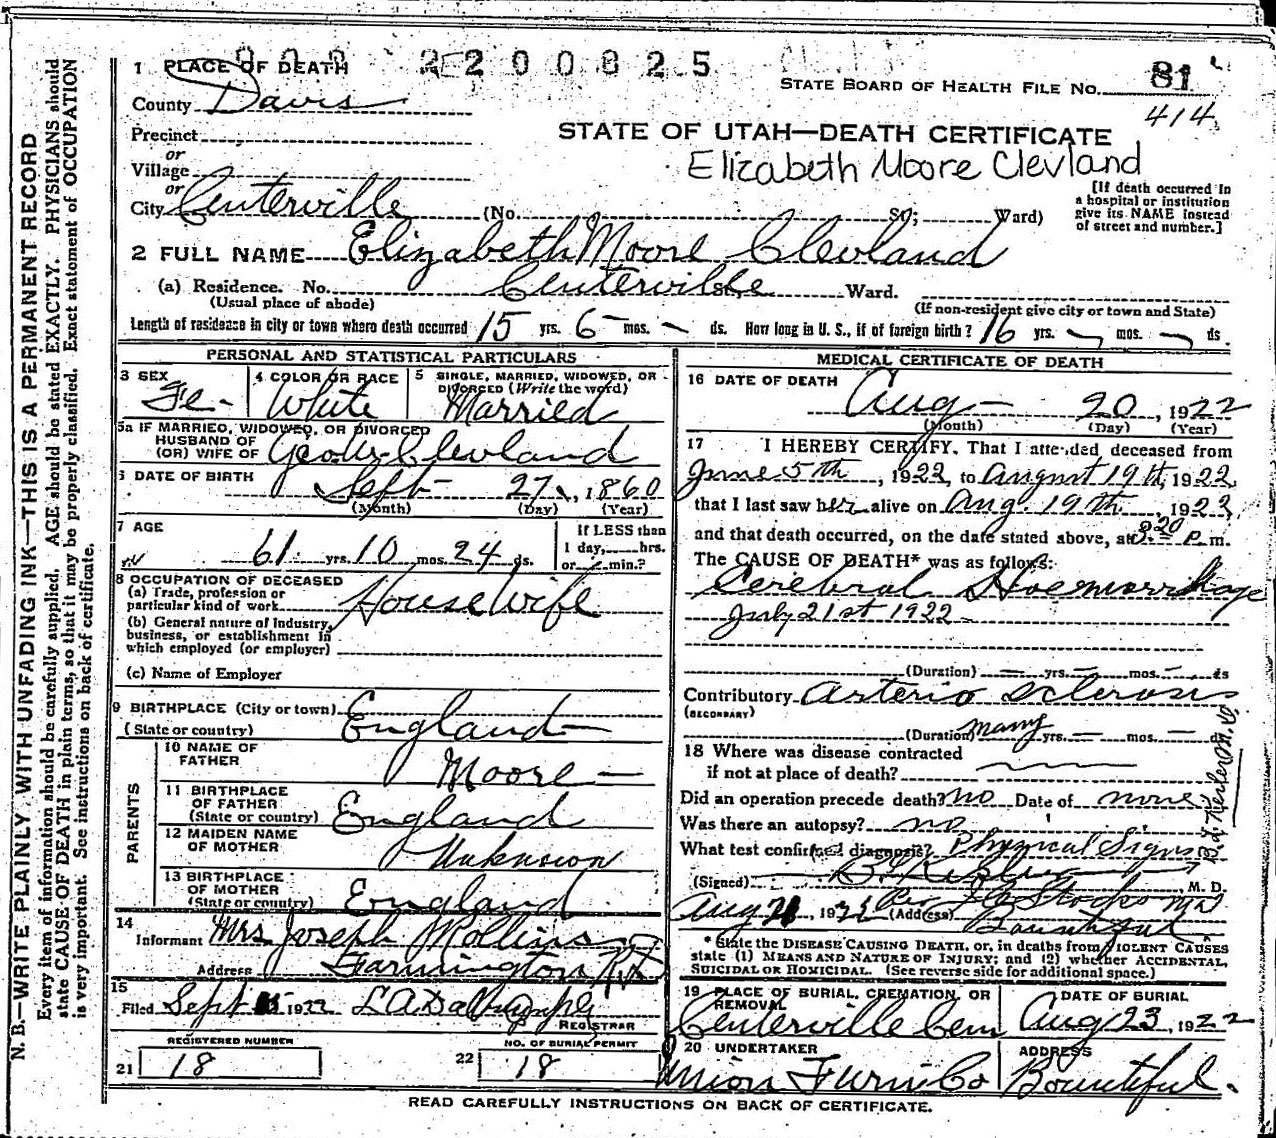 N. B.—WRITE PLAINLY, WITH UNFADING INK—THIS IS A PERMANENT RECORD
Every item of information should be carefully supplied. AGE should be stated EXACTLY. PHYSICIANS should
state CAUSE OF DEATH in plain terms, so that it may be properly classified. Exact statement of OCCUPATION
is very important. See instructions on back of certificate.
2200825
1 PLACE OF DEATH
STATE BOARD OF HEALTH FILE NO. 81
414
County Davis
Precinct
STATE OF UTAH—DEATH CERTIFICATE
or
Village
Elizabeth Moore Clevland
or
City Centerville (No. St; Ward)
[If death occurred in
a hospital or institution
give its NAME instead
of street and number.]
2 FULL NAME Elizabeth Moore Clevland
(a) Residence. No. Centerville St, Ward.
(Usual place of abode) (If non-resident give city or town and State)
Length of residence in city or town where death occurred 15 yrs. 6 mos. – ds. How long in U. S., if of foreign birth? 16 yrs. – mos. – ds.
PERSONAL AND STATISTICAL PARTICULARS
3 SEX Fe-
4 COLOR OR RACE White
5 SINGLE, MARRIED, WIDOWED, OR
DIVORCED (Write the word)
Married
5a IF MARRIED, WIDOWED, OR DIVORCED
HUSBAND OF
(OR) WIFE OF Clevland
6 DATE OF BIRTH Sept 27, 1860
(Month) (Day) (Year)
7 AGE
61 yrs. 10 mos. 24 ds.
If LESS than
1 day, hrs.
or min.?
8 OCCUPATION OF DECEASED
(a) Trade, profession or
particular kind of work Housewife
(b) General nature of industry,
business, or establishment in
which employed (or employer)
(c) Name of Employer
9 BIRTHPLACE (City or town)
(State or country) England
PARENTS
10 NAME OF
FATHER Moore
11 BIRTHPLACE
OF FATHER
(State or country) England
12 MAIDEN NAME
OF MOTHER Unknown
13 BIRTHPLACE
OF MOTHER
(State or country) England
14
Informant Mrs Joseph Rollins
Address Farmington
15
Filed Sept 1922 L A Dalrymple
REGISTRAR
REGISTERED NUMBER
21 18
NO. OF BURIAL PERMIT
22 18
MEDICAL CERTIFICATE OF DEATH
16 DATE OF DEATH
Aug 20, 1922
(Month) (Day) (Year)
17 I HEREBY CERTIFY. That I attended deceased from
June 5th, 1922, to August 19th, 1922,
that I last saw her alive on Aug. 19th, 1922,
and that death occurred, on the date stated above, at 8:20 P. m.
The CAUSE OF DEATH* was as follows:
Cerebral Hoemorrhage
July 21st 1922
(Duration) – yrs. – mos. – ds
Contributory Arterio Sclerosis
(SECONDARY)
(Duration) many yrs. – mos. –
18 Where was disease contracted
if not at place of death?
Did an operation precede death? no Date of none
Was there an autopsy? no
What test confirmed diagnosis? Physical Signs
(Signed) M. D.
Aug 21, 1922 (Address) Bountiful
* State the DISEASE CAUSING DEATH, or, in deaths from VIOLENT CAUSES
state (1) MEANS AND NATURE OF INJURY; and (2) whether ACCIDENTAL,
SUICIDAL OR HOMICIDAL. (See reverse side for additional space.)
19 PLACE OF BURIAL, CREMATION, OR
REMOVAL
Centerville Cem
DATE OF BURIAL
Aug 23, 1922
20 UNDERTAKER
Union Furn Co
ADDRESS
Bountiful.
READ CAREFULLY INSTRUCTIONS ON BACK OF CERTIFICATE.